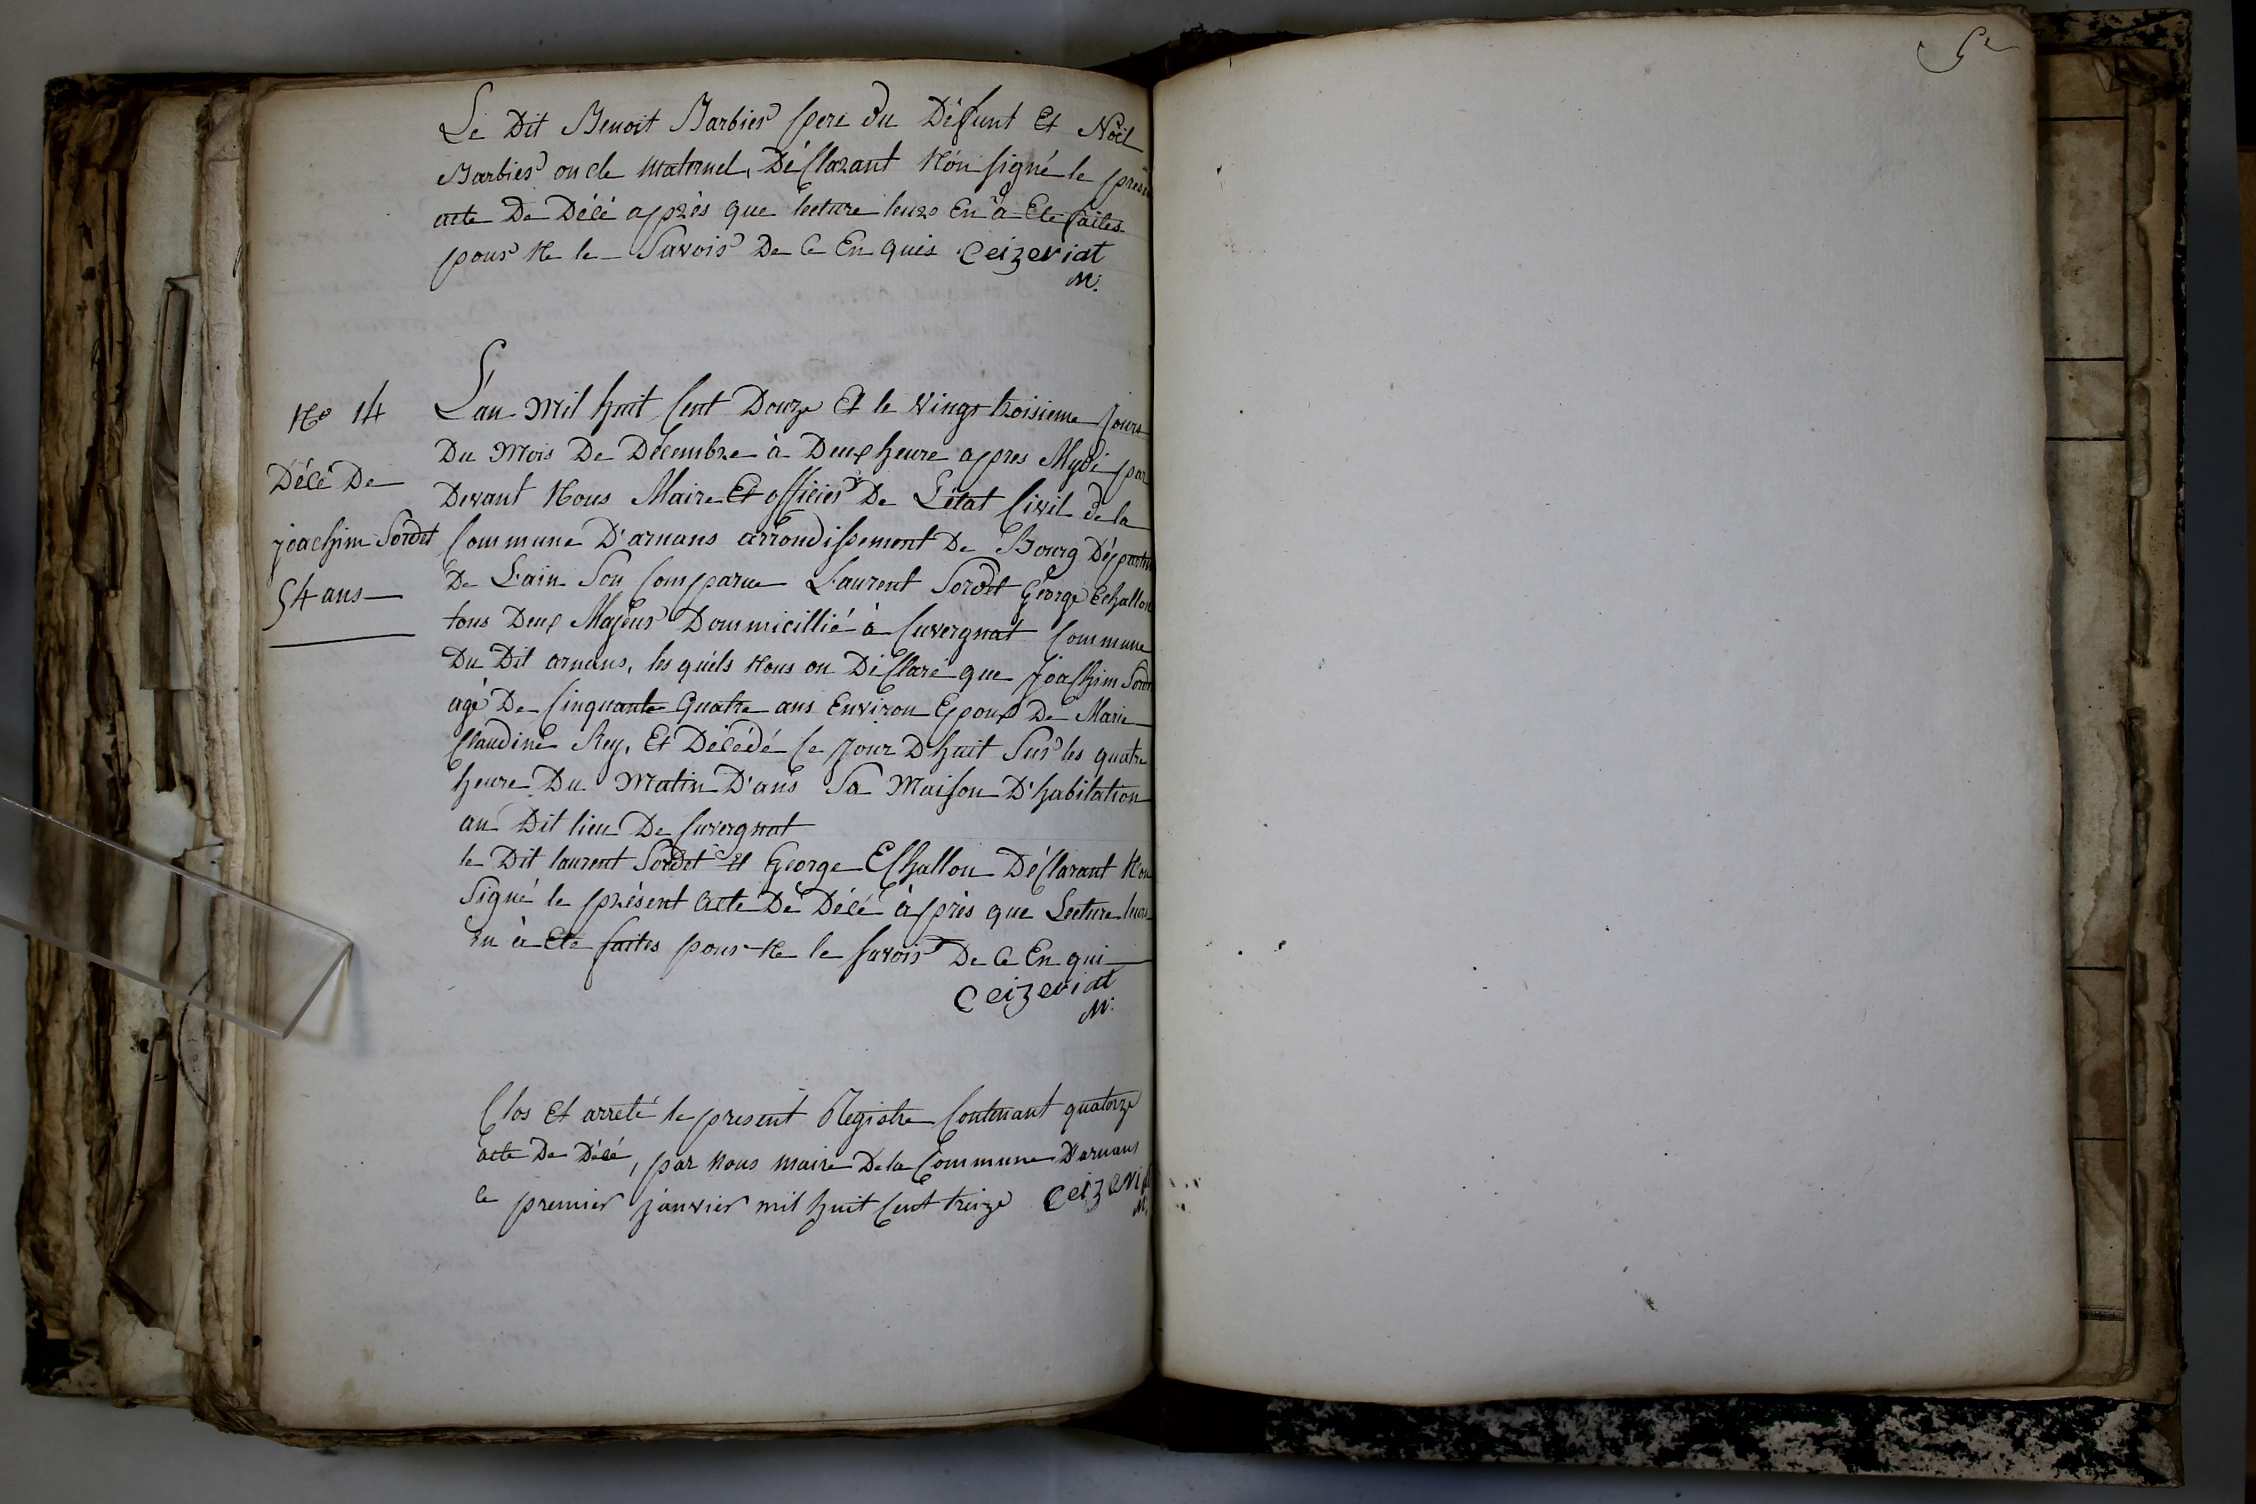 Le Dit Benoit Barbier pere du Défunt Et Noël
Barbier oncle maternel, Déclarant Nón signé le présen
acte De Décé apprès que lecture leurs En à Eté faites
pour Ne le Savoir De Ce En quis Ceizeriat
M.
No 14
Décé De
joachim Sordet
54 ans
L'an Mil huit Cent Douze Et le Vingt troisieme Jours
Du Mois De Décembre à Deux heure appres Mydi par
Devant Nous Maire Et officier De L'état Civil de la
Commune D'arnans arrondissement De Bourg Départem
De L'ain Son Comparue Laurent Sordet George Echallon
tous Deux Majeur Dommicillié à Cuvergnat Commune
Du Dit arnans, les quéls Nous on Déclaré que Joachim Sorde
agé De Cinquante Quatre ans Environ Epoux De Marie
Claudine Rey, Et Décédé Ce Jour D huit Sur les quatre
heure Du Matin D'ans Sa Maison D'habitation
au Dit lieu De Cuvergnat
le Dit laurent Sordet Et George Echallon Déclarant Non
Signé le présent Acte De Décé àpprès que Lecture leurs
En à Eté faites pour Ne le Savoir De Ce En qui
Ceizeriat
M.
Clos Et arreté le present Registre Contenant quatorze
acte De Décé, par Nous maire De la Commune D'arnans
le premier janvier mil huit Cent treize Ceizeriat
M.